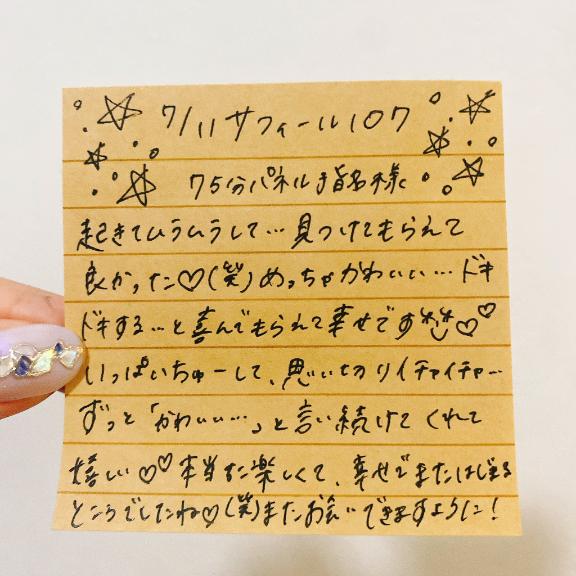 7/11サフィール107
75分パネル指名様
起きてムラムラして…見つけてもらえて
良かった♡(笑)めっちゃかわいい…ドキ
ドキする…と喜んでもらえて幸せです♡♡
いっぱいちゅーして、思い切りイチャイチャ…
ずっと「かわいい…」と言い続けてくれて
嬉しい♡♡本当に楽しくて、幸せでまたはじまる
ところでしたね♡(笑)またお会いできますように!